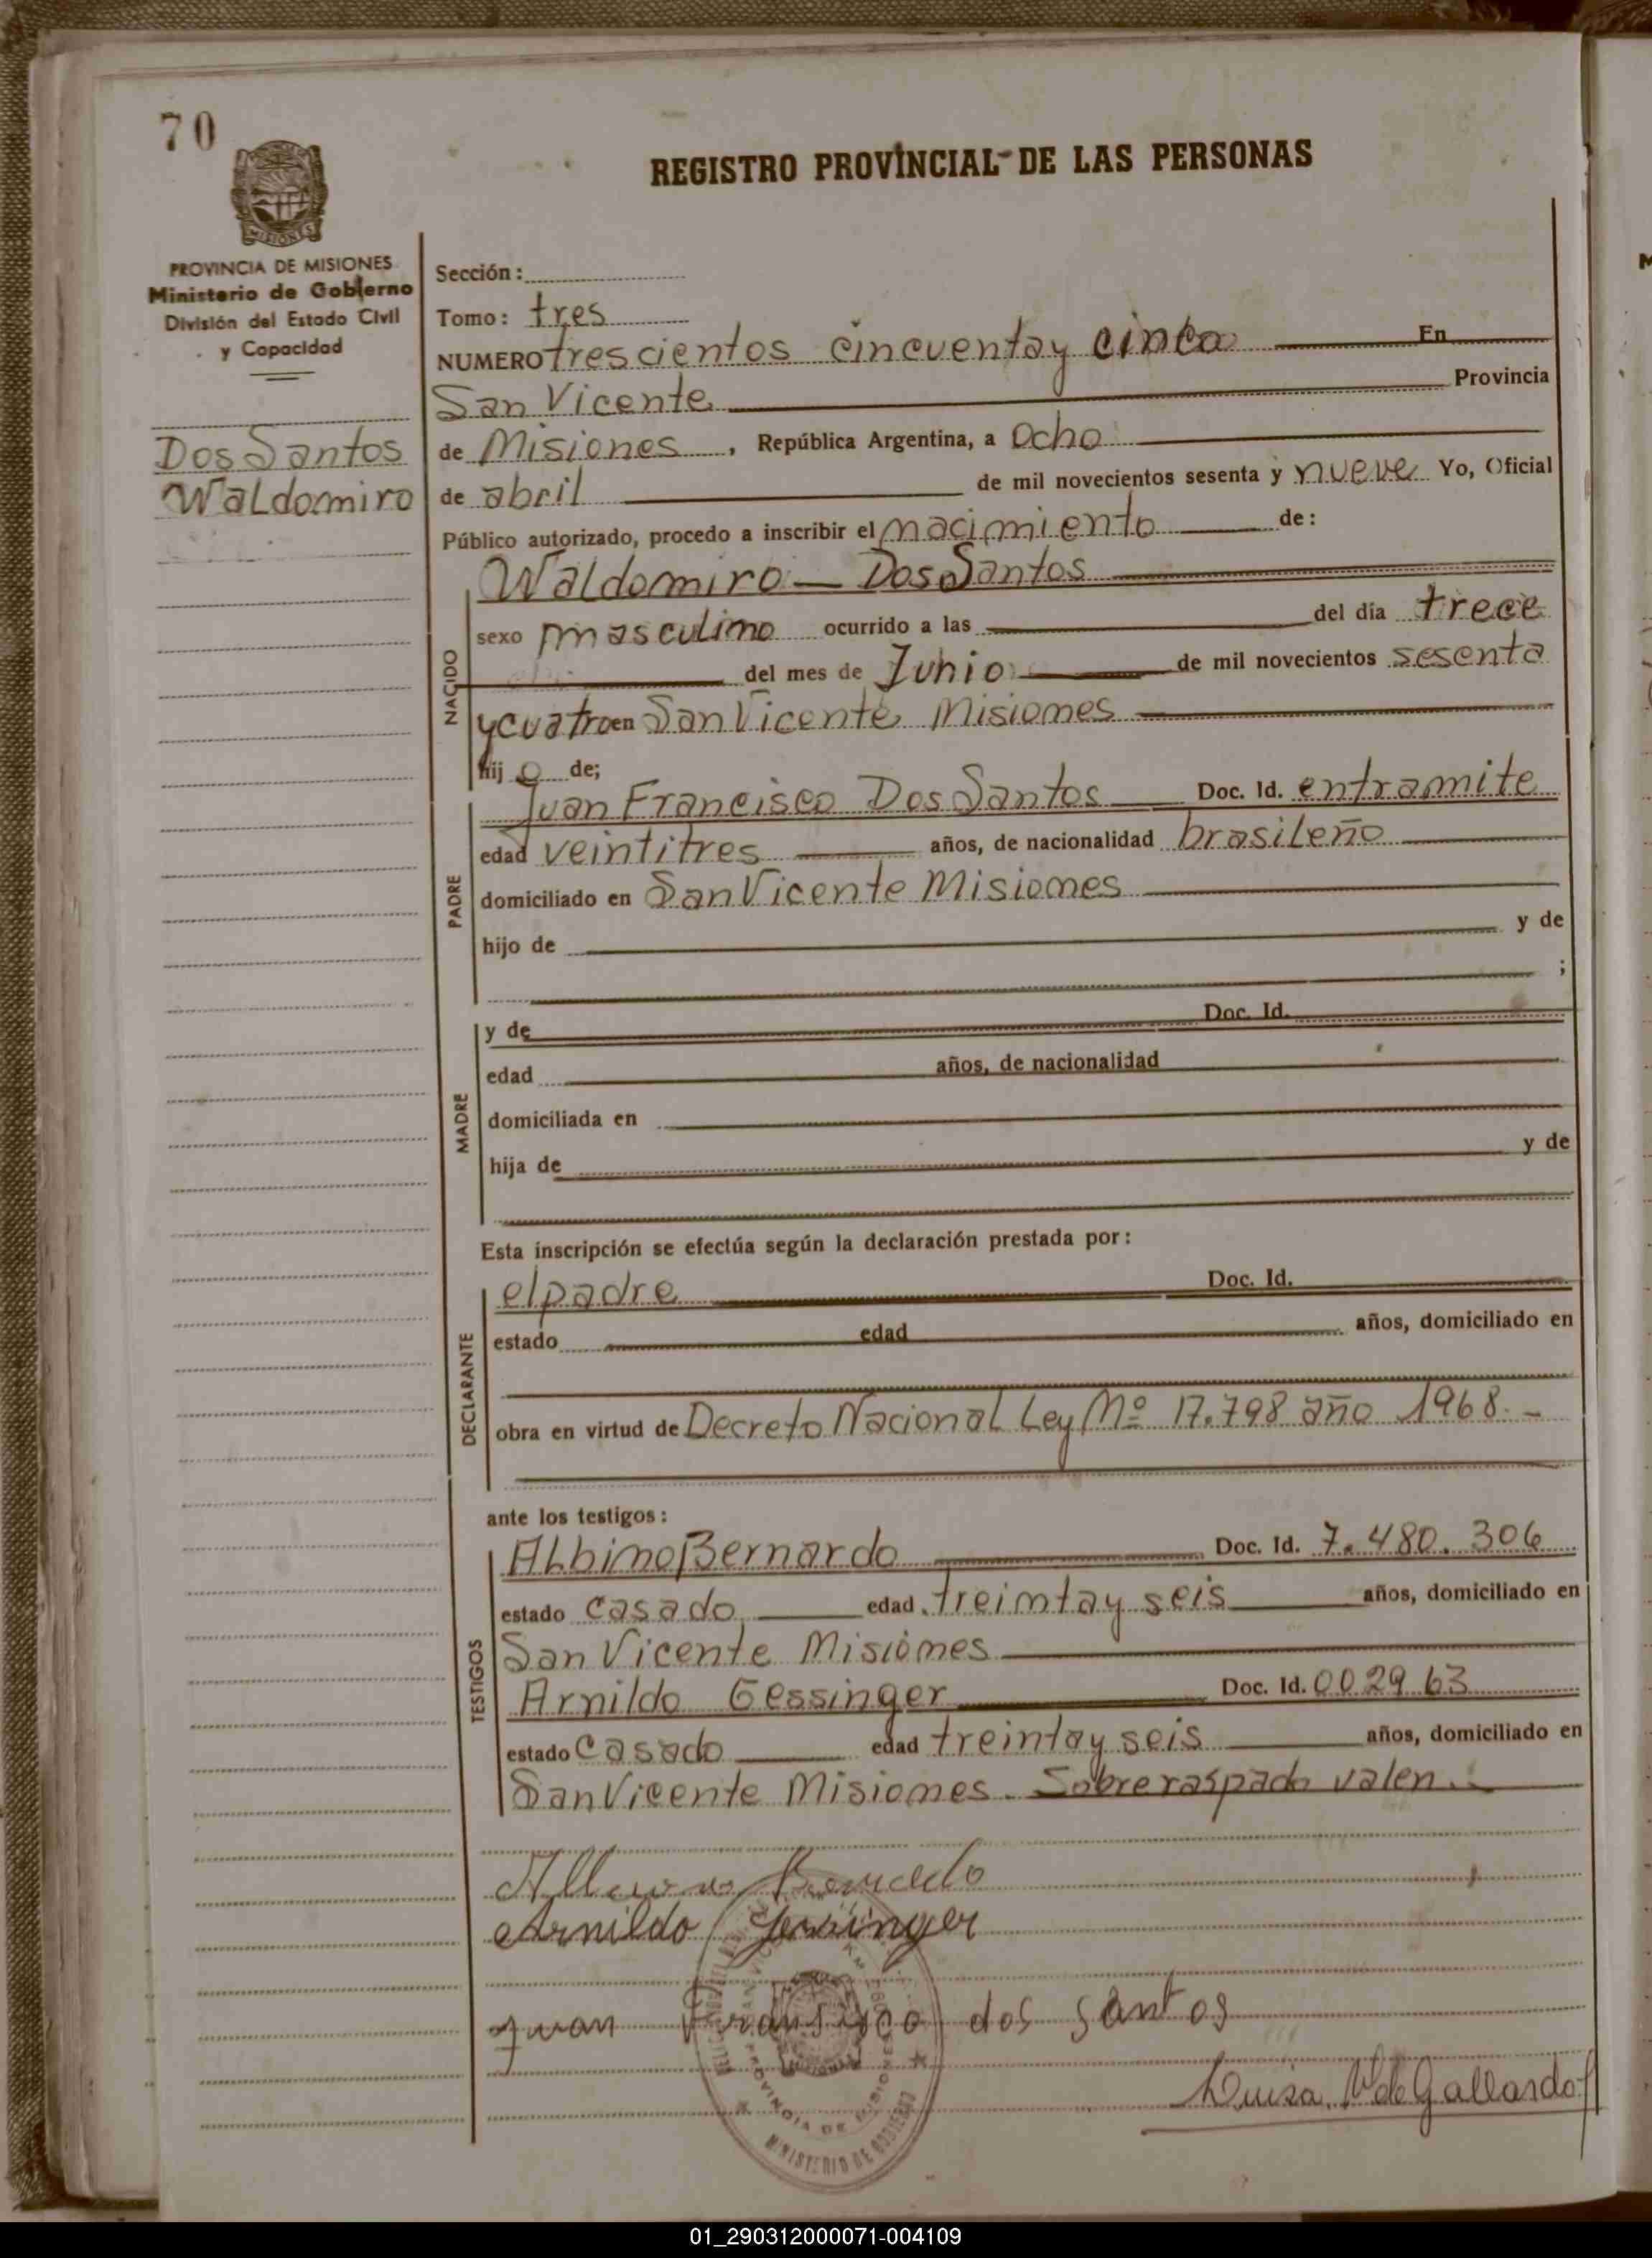 70
REGISTRO PROVINCIAL DE LAS PERSONAS
MISIONES
PROVINCIA DE MISIONES
Ministerio de Gobierno
División del Estado Civil
y Capacidad
Dos Santos
Waldomiro
Sección:
Tomo: tres
NUMERO trescientos cincuenta y cinco En
San Vicente Provincia
de Misiones, República Argentina, a Ocho
de abril de mil novecientos sesenta y nueve Yo, Oficial
Público autorizado, procedo a inscribir el nacimiento de:
NACIDO
Waldomiro — Dos Santos
sexo masculino ocurrido a las del día trece
del mes de Junio de mil novecientos sesenta
y cuatro en San Vicente Misiones
hij o de;
PADRE
Juan Francisco Dos Santos Doc. Id. en tramite
edad veintitres años, de nacionalidad brasileño
domiciliado en San Vicente Misiones
hijo de y de
;
MADRE
y de Doc. Id.
edad años, de nacionalidad
domiciliada en
hija de y de
Esta inscripción se efectúa según la declaración prestada por:
DECLARANTE
el padre Doc. Id.
estado edad años, domiciliado en
obra en virtud de Decreto Nacional Ley Nº 17.798 año 1968.-
ante los testigos:
TESTIGOS
Albino Bernardo Doc. Id. 7.480.306
estado casado edad treinta y seis años, domiciliado en
San Vicente Misiones
Arnildo Gessinger Doc. Id. 002963
estado casado edad treinta y seis años, domiciliado en
San Vicente Misiones. Sobre raspado valen.
Arnildo Gessinger
Juan Fransisco dos santos
Luisa V de Gallardo
PROVINCIA DE MISIONES
MINISTERIO DE GOBIERNO
01_290312000071-004109